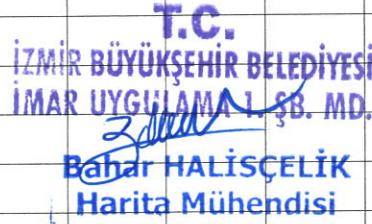 T.C.
İZMİR BÜYÜKŞEHİR BELEDİYESİ
İMAR UYGULAMA 1. ŞB. MD.
Bahar HALİSÇELİK
Harita Mühendisi